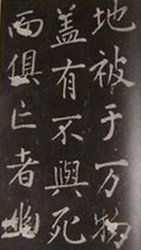 地被于万物
盖有不與死
而俱亡者幽